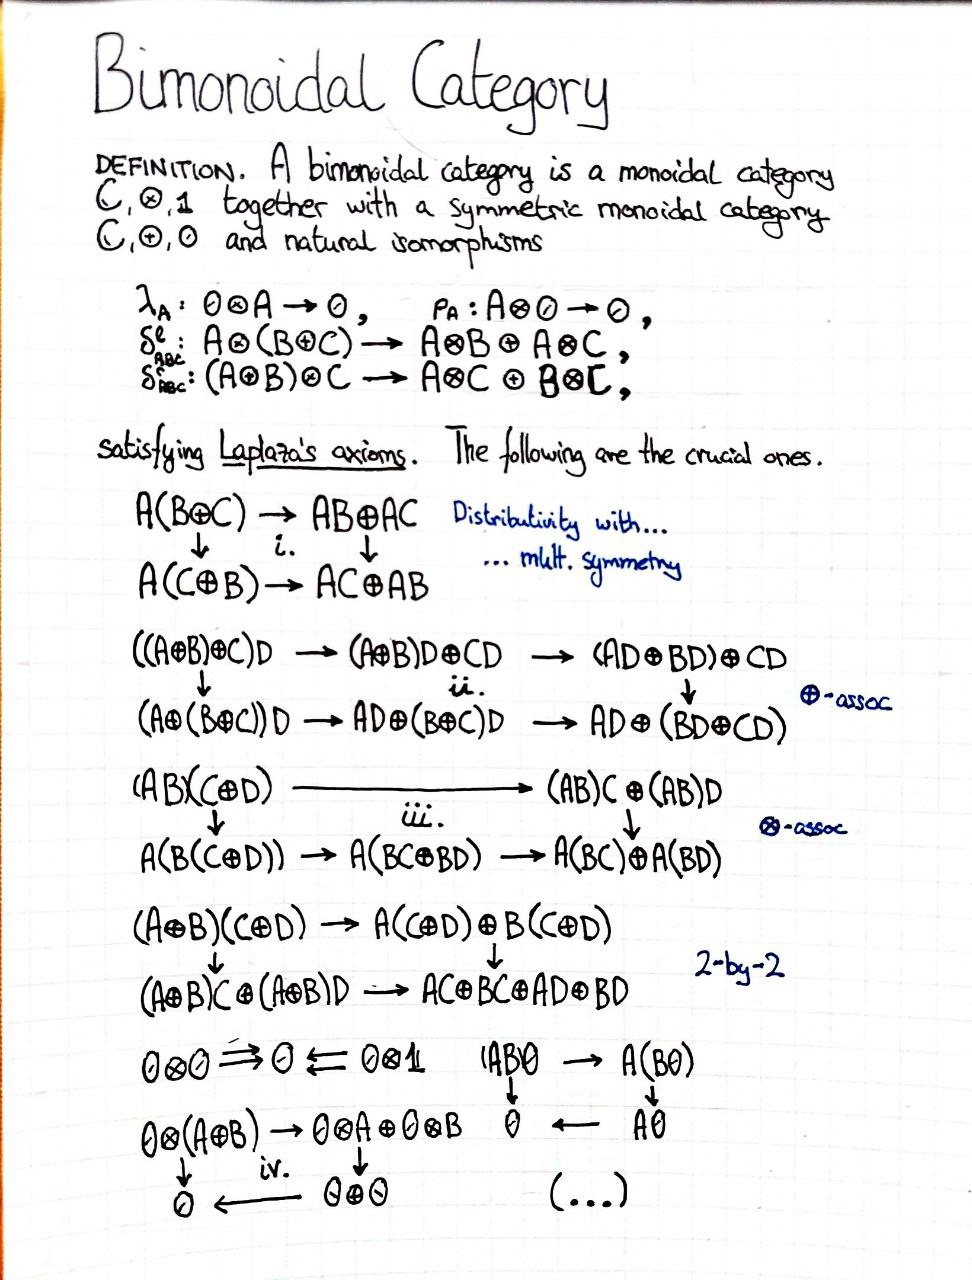 Bimonoidal Category
DEFINITION. A bimonoidal category is a monoidal category
C, ⊗, 1 together with a symmetric monoidal category
C, ⊕, 0 and natural isomorphisms
λA : 0⊗A → 0, ρA : A⊗0 → 0,
δˡABC : A⊗(B⊕C) → A⊗B ⊕ A⊗C,
δʳABC : (A⊕B)⊗C → A⊗C ⊕ B⊗C,
satisfying Laplaza's axioms. The following are the crucial ones.
A(B⊕C) → AB⊕AC Distributivity with...
↓ i. ↓
... mult. symmetry
A(C⊕B) → AC⊕AB
((A⊕B)⊕C)D → (A⊕B)D⊕CD → (AD⊕BD)⊕CD
↓ ii. ↓ ⊕-assoc
(A⊕(B⊕C))D → AD⊕(B⊕C)D → AD⊕(BD⊕CD)
(AB)(C⊕D) → (AB)C⊕(AB)D
↓ iii. ↓ ⊗-assoc
A(B(C⊕D)) → A(BC⊕BD) → A(BC)⊕A(BD)
(A⊕B)(C⊕D) → A(C⊕D)⊕B(C⊕D)
↓ ↓ 2-by-2
(A⊕B)C⊕(A⊕B)D → AC⊕BC⊕AD⊕BD
0⊗0 ⇉ 0 ⇇ 0⊗1 (AB)0 → A(B0)
↓ ↓
0⊗(A⊕B) → 0⊗A⊕0⊗B 0 ← A0
↓ iv. ↓
0 ← 0⊕0 (...)